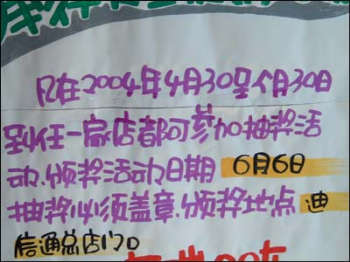 凡在2004年4月30日至个月30日
到任一家店都可参加抽奖活
动.颁奖活动日期 6月6日
抽奖必须盖章.颁奖地点 迪
信通总店门口